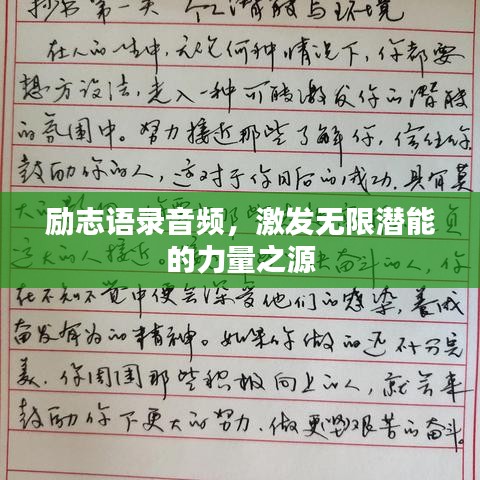 抄书第一类 个人潜能与环境
在人的一生中，无论何种情况下，你都要
想方设法，走入一种可能激发你的潜能
的氛围中。努力接近那些了解你，信任你
鼓励你的人，这对于你日后的成功，具有莫
大的
励志语录音频，激发无限潜能
的力量之源
这大的人接近
奋斗的人，你
在不知不觉中便会深受他们的感染，养成
奋发有为的精神。如果你做的还不十分完
美，你周围那些积极向上的人，就会来
鼓励你下更大的努力，做更坚艰苦的奋斗。